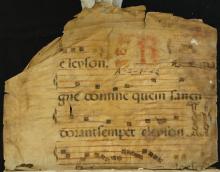 eleyson. R
gne domine quem sancti
dorant semper eleyson